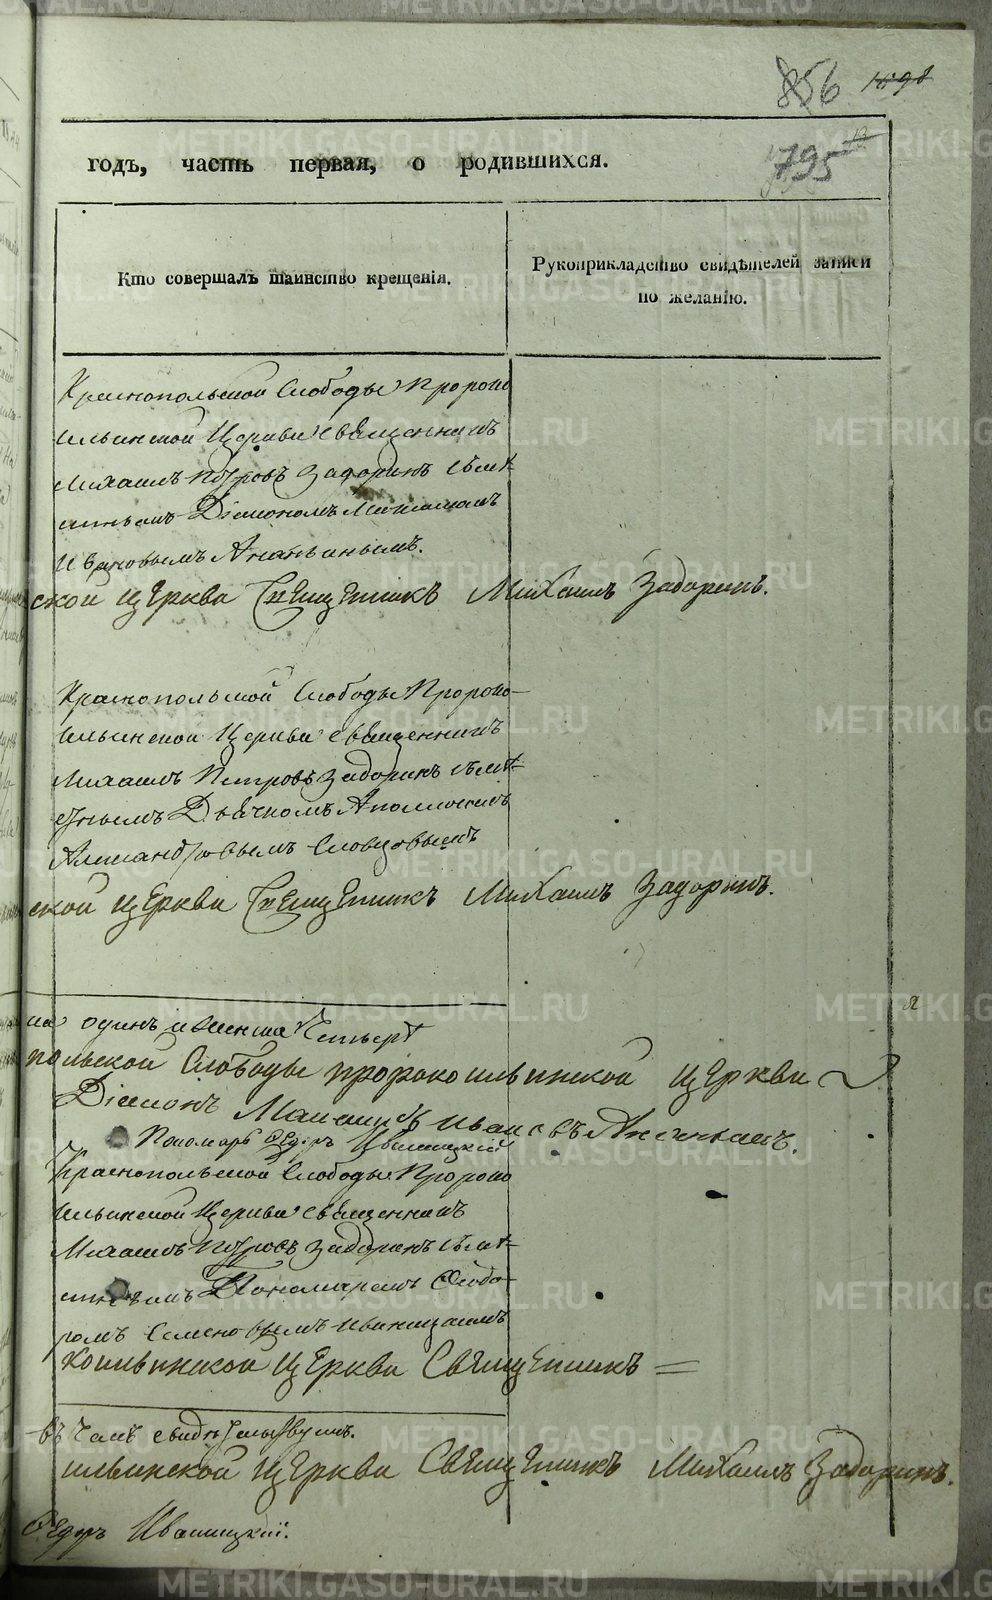 856 1598
795
годъ, часть первая, о родившихся.
Кто совершалъ таинство крещенія.
Рукоприкладство свидѣтелей записи
по желанію.
Краснопольской Слободы Пророко
Ильинской Церкви священникъ
Михаилъ Петровъ Задоринъ съ мѣ
стнымъ Діакономъ
Ивановымъ Ананьинымъ.
ской церкви Священникъ Михаилъ Задоринъ.
Краснопольской Слободы Пророко-
Ильинской Церкви священникъ
Михаилъ Петровъ Задоринъ съ мѣ-
стнымъ Дьячкомъ Аполлономъ
Александровымъ Словцовымъ
ской церкви Священникъ Михаилъ Задоринъ.
одинъ
польской Слободы пророкоильинской церкви
Діаконъ Ивановъ Ананьинъ.
Пономарь Ѳедоръ Иваницкій
Краснопольской Слободы Пророко
Ильинской Церкви священникъ
Михаилъ Петровъ Задоринъ съ мѣ-
стнымъ Пономаремъ Ѳедо-
ромъ Семеновымъ Иваницкимъ
коильинской церкви Священникъ
въ чемъ свидѣтельствуемъ.
ильинской церкви Священникъ Михаилъ Задоринъ.
Ѳедоръ Иваницкій.
METRIKI.GASO-URAL.RU